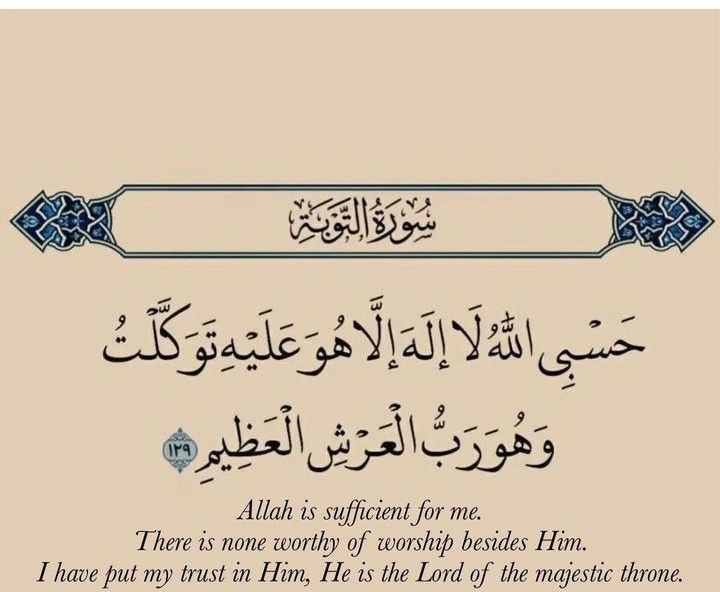 سُورَةُ التَّوْبَةِ
حَسْبِيَ اللَّهُ لَا إِلَهَ إِلَّا هُوَ عَلَيْهِ تَوَكَّلْتُ
وَهُوَ رَبُّ الْعَرْشِ الْعَظِيمِ ١٢٩
Allah is sufficient for me.
There is none worthy of worship besides Him.
I have put my trust in Him, He is the Lord of the majestic throne.